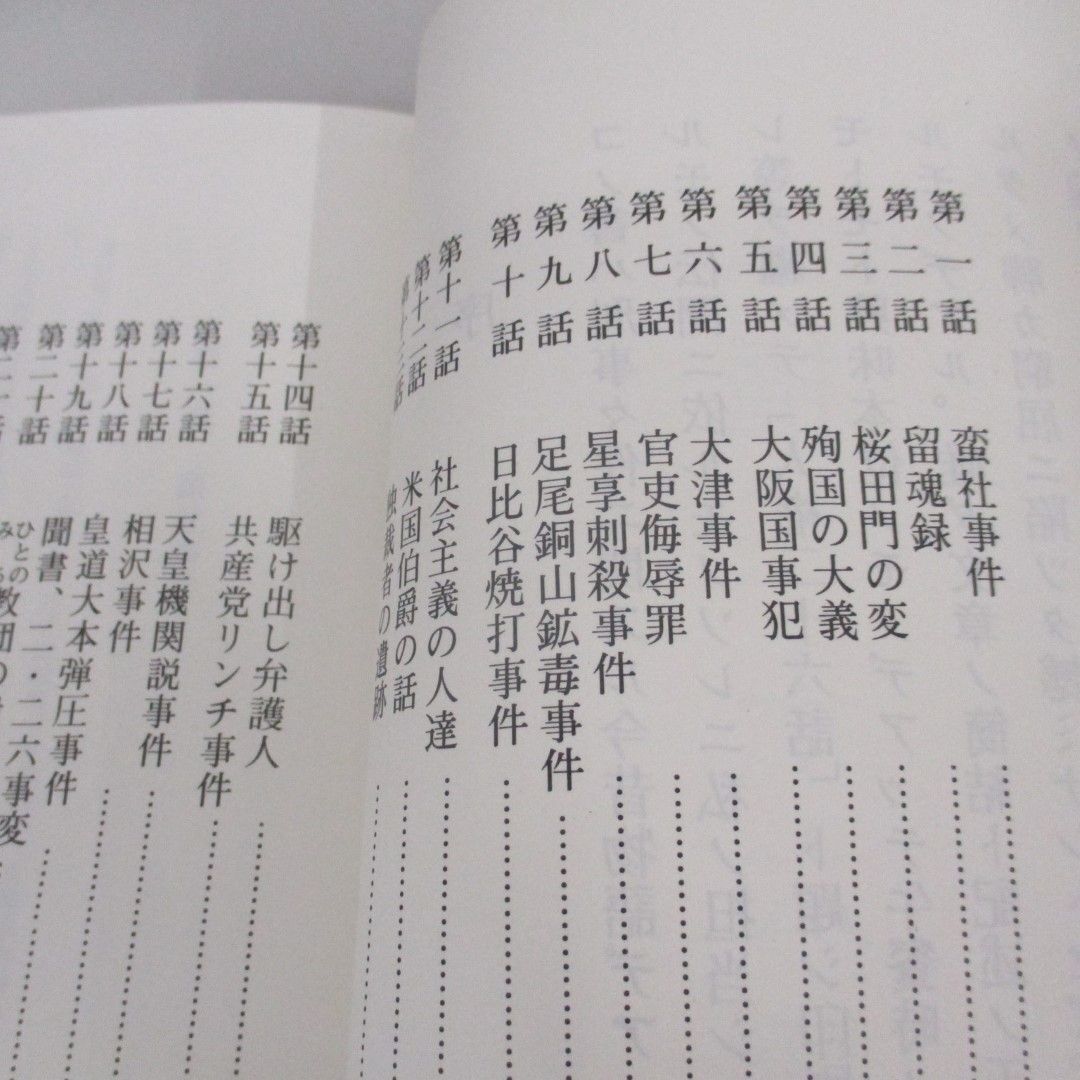 第一話 蛮社事件
第二話 留魂録
第三話 桜田門の変
第四話 殉国の大義
第五話 大阪国事犯
第六話 大津事件
第七話 官吏侮辱罪
第八話 星享刺殺事件
第九話 足尾銅山鉱毒事件
第十話 日比谷焼打事件
第十一話 社会主義の人達
第十二話 米国伯爵の話
第十三話 独裁者の遺跡
第十四話 駆け出し弁護人
第十五話 共産党リンチ事件
第十六話 天皇機関説事件
第十七話 相沢事件
第十八話 皇道大本弾圧事件
第十九話 聞書、二・二六事変
第二十話 ひとのみち教団の
第二十